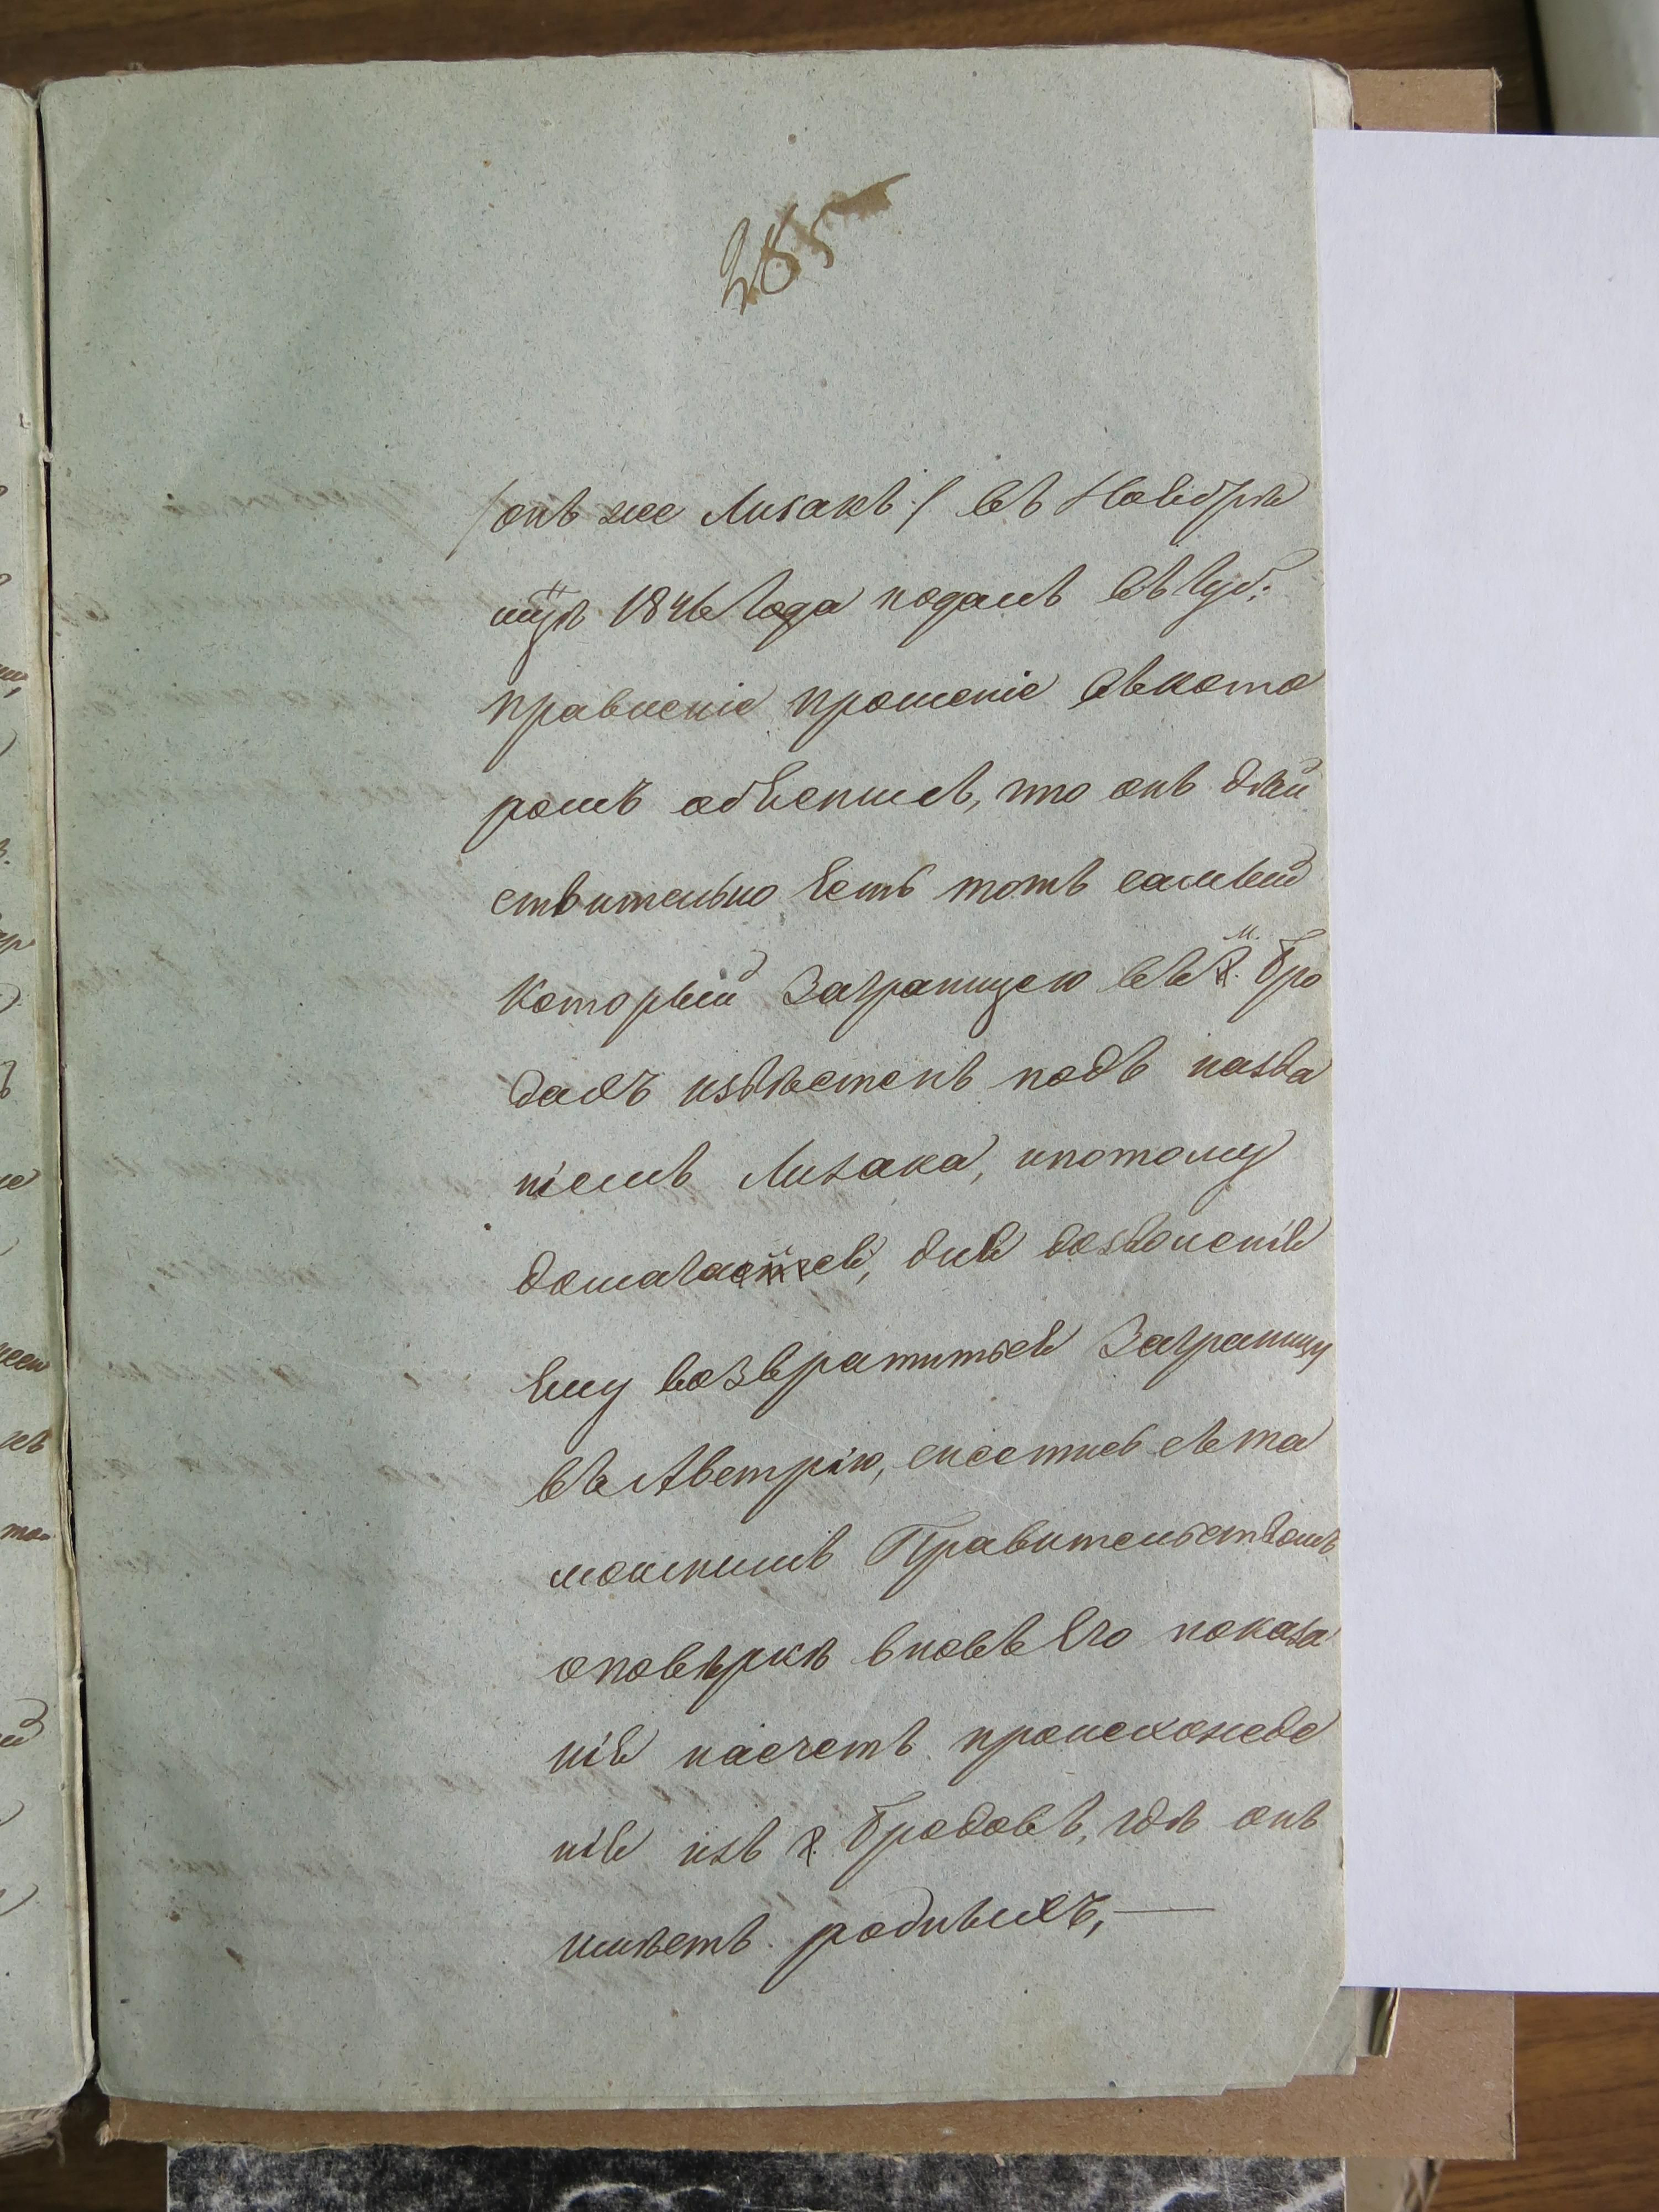 285
/онъ же Лизакъ/ въ Ноябрѣ
мцѣ 1846 года подалъ въ Губ:
правленіе прошеніе въ кото
ромъ объяснилъ, что онъ дѣй
ствительно есть тотъ самый
который заграницею въ м. Бро
дахъ извѣстенъ подъ назва
ніемъ Лизака, и потому
домагался, для дозволенія
ему возвратиться заграницу
въ Австрію, снестись съ та
мошнимъ Правительствомъ
о повѣркѣ вновь его показа
нія насчетъ происхожде
нія изъ Бродовъ, гдѣ онъ
имѣетъ родныхъ,—